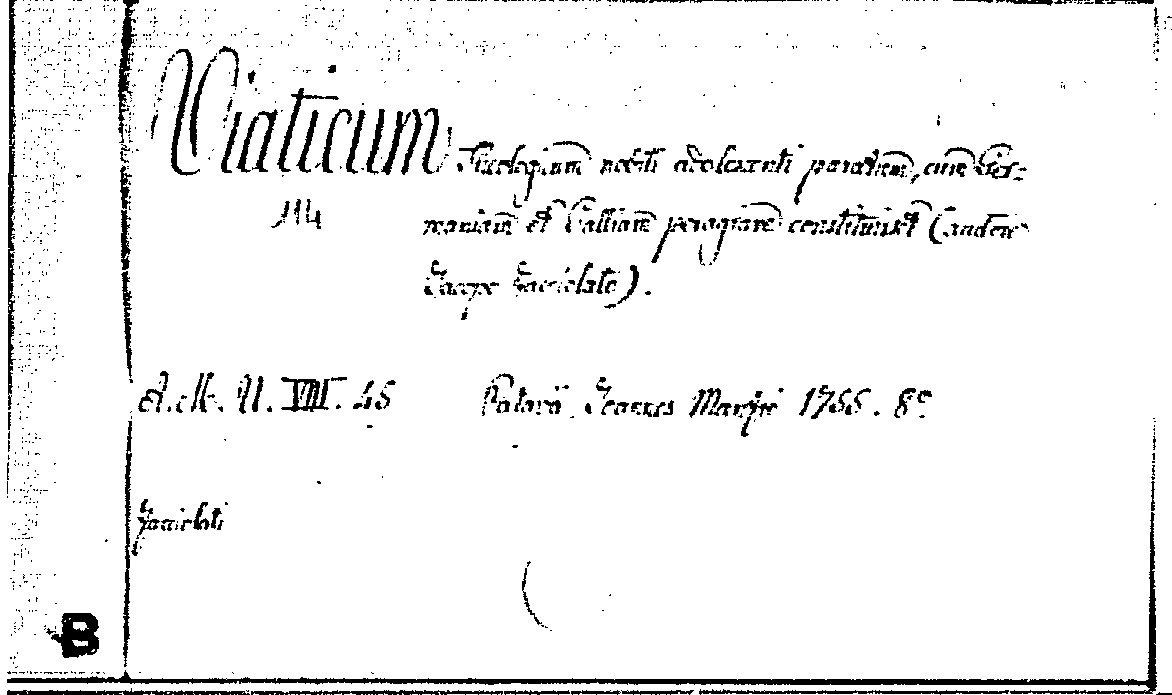 Viaticum Theologicum nobili adolescenti paratum, cum Ger=
114 maniam et Galliam peragrare constituisset (auctore
Jacopo Facciolato).
A. M. U. VIII. 45 Patavii. Joannes Manfrè 1755. 8º
Facciolati
B